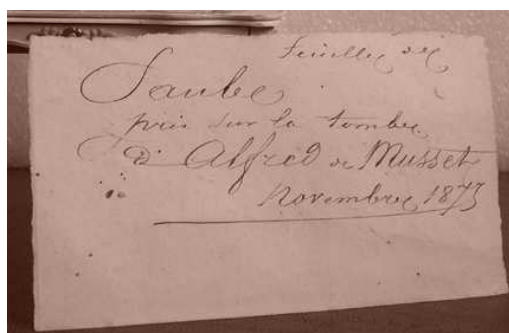 Feuilles de
Saule
pris sur la tombe
d'Alfred de Musset
Novembre 1873